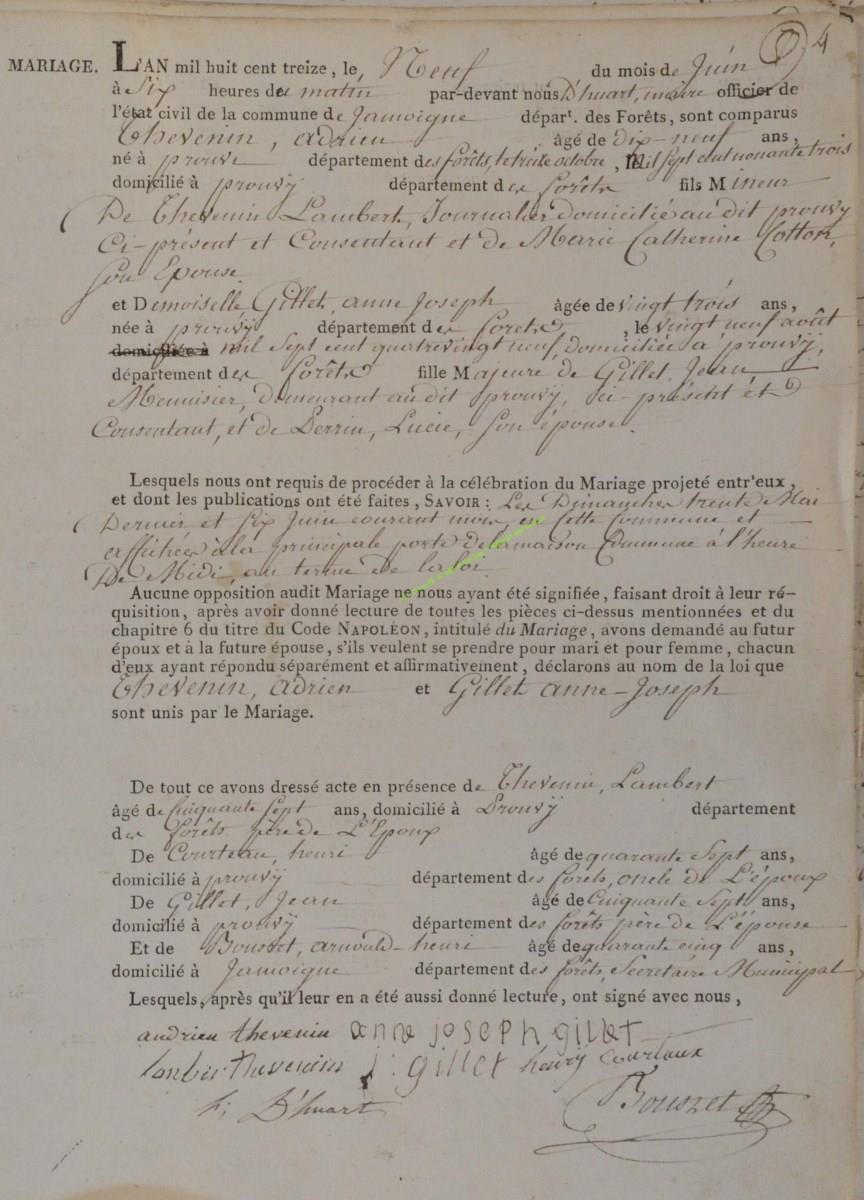 4
MARIAGE. L'AN mil huit cent treize, le, Neuf du mois de Juin
à Six heures du matin par-devant nous D'huart, maire officier de
l'état civil de la commune de Jamoigne dépar.t des Forêts, sont comparus
Thevenin, adrien âgé de dix-neuf ans,
né à prouvÿ département des forêts, le treize octobre, Mil sept cent nonante trois
domicilié à prouvÿ département des forêts fils Mineur
De Thevenin Lambert, Journalier domicilié au dit prouvÿ
Ci-présent et Consentant et de Marie Catherine Cotton,
son Epouse
et Demoiselle Gillet, anne Joseph âgée de vingt trois ans,
née à prouvÿ département des forets, le vingt neuf août
domiciliée à mil Sept cent quatrevingt neuf, domiciliée à prouvÿ,
département des forêts fille Majeure de Gillet, Jean
Menuisier, demeurant au dit prouvÿ, ci-présent et
Consentant, et de Perrin, Lucie, son épouse.
Lesquels nous ont requis de procéder à la célébration du Mariage projeté entr'eux,
et dont les publications ont été faites, SAVOIR: Les Dimanches trente Mai
Dernier et Six Juin courant mois, en cette Commune et
affichées à la principale porte de la maison Commune à l'heure
De Midi, au terme de la loi.
Aucune opposition audit Mariage ne nous ayant été signifiée, faisant droit à leur ré-
quisition, après avoir donné lecture de toutes les pièces ci-dessus mentionnées et du
chapitre 6 du titre du Code NAPOLÉON, intitulé du Mariage, avons demandé au futur
époux et à la future épouse, s'ils veulent se prendre pour mari et pour femme, chacun
d'eux ayant répondu séparément et affirmativement, déclarons au nom de la loi que
Thevenin, adrien et Gillet anne-Joseph
sont unis par le Mariage.
De tout ce avons dressé acte en présence de Thevenin, Lambert
âgé de Cinquante Sept ans, domicilié à Prouvÿ département
des forêts père de L'Epoux
De Courteau, henri âgé de quarante Sept ans,
domicilié à prouvÿ département des forêts, oncle de L'époux
De Gillet, Jean âgé de Cinquante Sept ans,
domicilié à prouvÿ département des forêts père de L'épouse
Et de Bousret, arnould-henri âgé de quarante cinq ans,
domicilié à Jamoigne département des forêts, Secretaire Municipal
Lesquels, après qu'il leur en a été aussi donné lecture, ont signé avec nous,
andrien thevenin anne joseph gillet
lanber thevenin j: gillet henry courtaux
D'huart Bousret